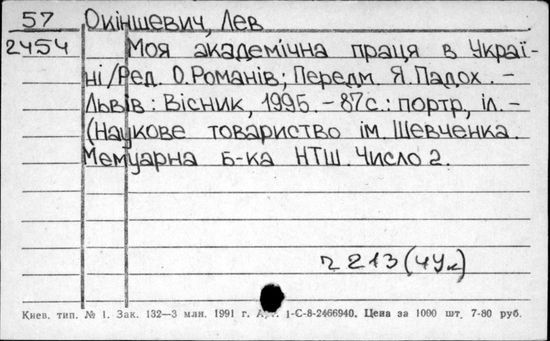 57 Окіншевич, Лев
2454 Моя академічна праця в Украї-
ні/Ред. О.Романів; Передм. Я.Падох. –
Львів: Вісник, 1995. – 87с.: портр, іл. –
(Наукове товариство ім. Шевченка.
Мемуарна б-ка НТШ. Число 2.
213 (4Ук)
Киев. тип. № 1. Зак. 132—3 млн. 1991 г. 1-С-8-2466940. Цена за 1000 шт. 7-80 руб.